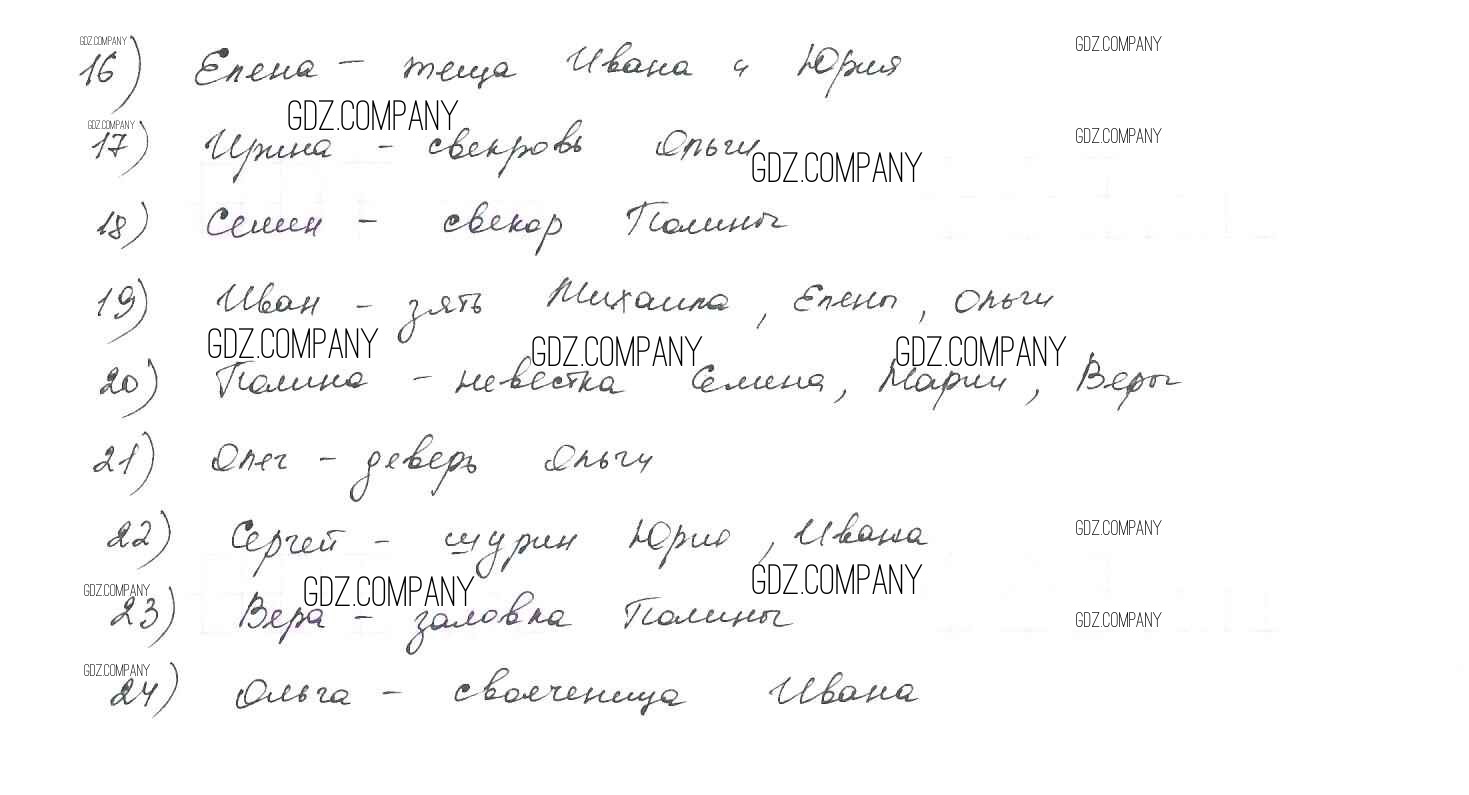 GDZ.COMPANY
GDZ.COMPANY
16) Елена – теща Ивана и Юрия
GDZ.COMPANY
GDZ.COMPANY
GDZ.COMPANY
17) Ирина – свекровь Ольги
GDZ.COMPANY
18) Семен – свекор Полины
19) Иван – зять Михаила, Елены, Ольги
GDZ.COMPANY GDZ.COMPANY GDZ.COMPANY
20) Полина – невестка Семена, Марии, Веры
21) Олег – деверь Ольги
22) Сергей – шурин Юрия, Ивана
GDZ.COMPANY
GDZ.COMPANY GDZ.COMPANY GDZ.COMPANY
23) Вера – золовка Полины
GDZ.COMPANY
GDZ.COMPANY
24) Ольга – свояченица Ивана